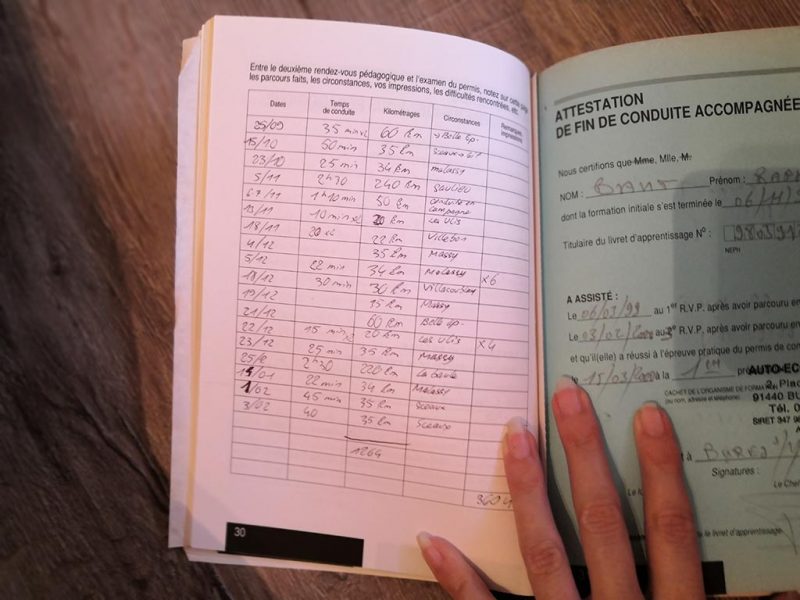 Entre le deuxième rendez-vous pédagogique et l'examen du permis, notez sur cette page
les parcours faits, les circonstances, vos impressions, les difficultés rencontrées, etc.
Dates Temps de conduite Kilométrages Circonstances Remarques impressions
25/09 35 min 60 km → Belle Ep.
15/10 50 min 35 km Sceaux
23/10 25 min 34 km
5/11 2h30 240 km Saulieu
1h10 min 50 km conduite en campagne
10 min km Les Ulis
18/11 22 km Villebon
4/12 35 km Massy
5/12 22 min 34 km x6
18/12 30 min 30 km
19/12 15 km Massy
21/12 60 km Belle Ep.
22/12 15 min 20 km Les Ulis x4
23/12 25 min 35 km Massy
2h30 220 km La Baule
22 min 34 km
1/02 45 min 35 km Sceaux
3/02 40 35 km Sceaux
1264
30
ATTESTATION
DE FIN DE CONDUITE ACCOMPAGNÉE
Nous certifions que Mme, Mlle, M.
NOM : Prénom :
dont la formation initiale s'est terminée le 06/11/
Titulaire du livret d'apprentissage N° :
NEPH
A ASSISTÉ :
Le 06/03/99 au 1er R.V.P. après avoir parcouru en
Le 03/02/ au R.V.P. après avoir parcouru en
et qu'il(elle) a réussi à l'épreuve pratique du permis de con
le 15/03/ à la 1ère pré
AUTO-EC
CACHET DE L'ORGANISME DE FORMATION
(ou nom, adresse et téléphone)
2, Plac
91440 BU
Tél. 0
SIRET 347 9
à Bures s/
Signatures :
Le Chef
le livret d'apprentissage